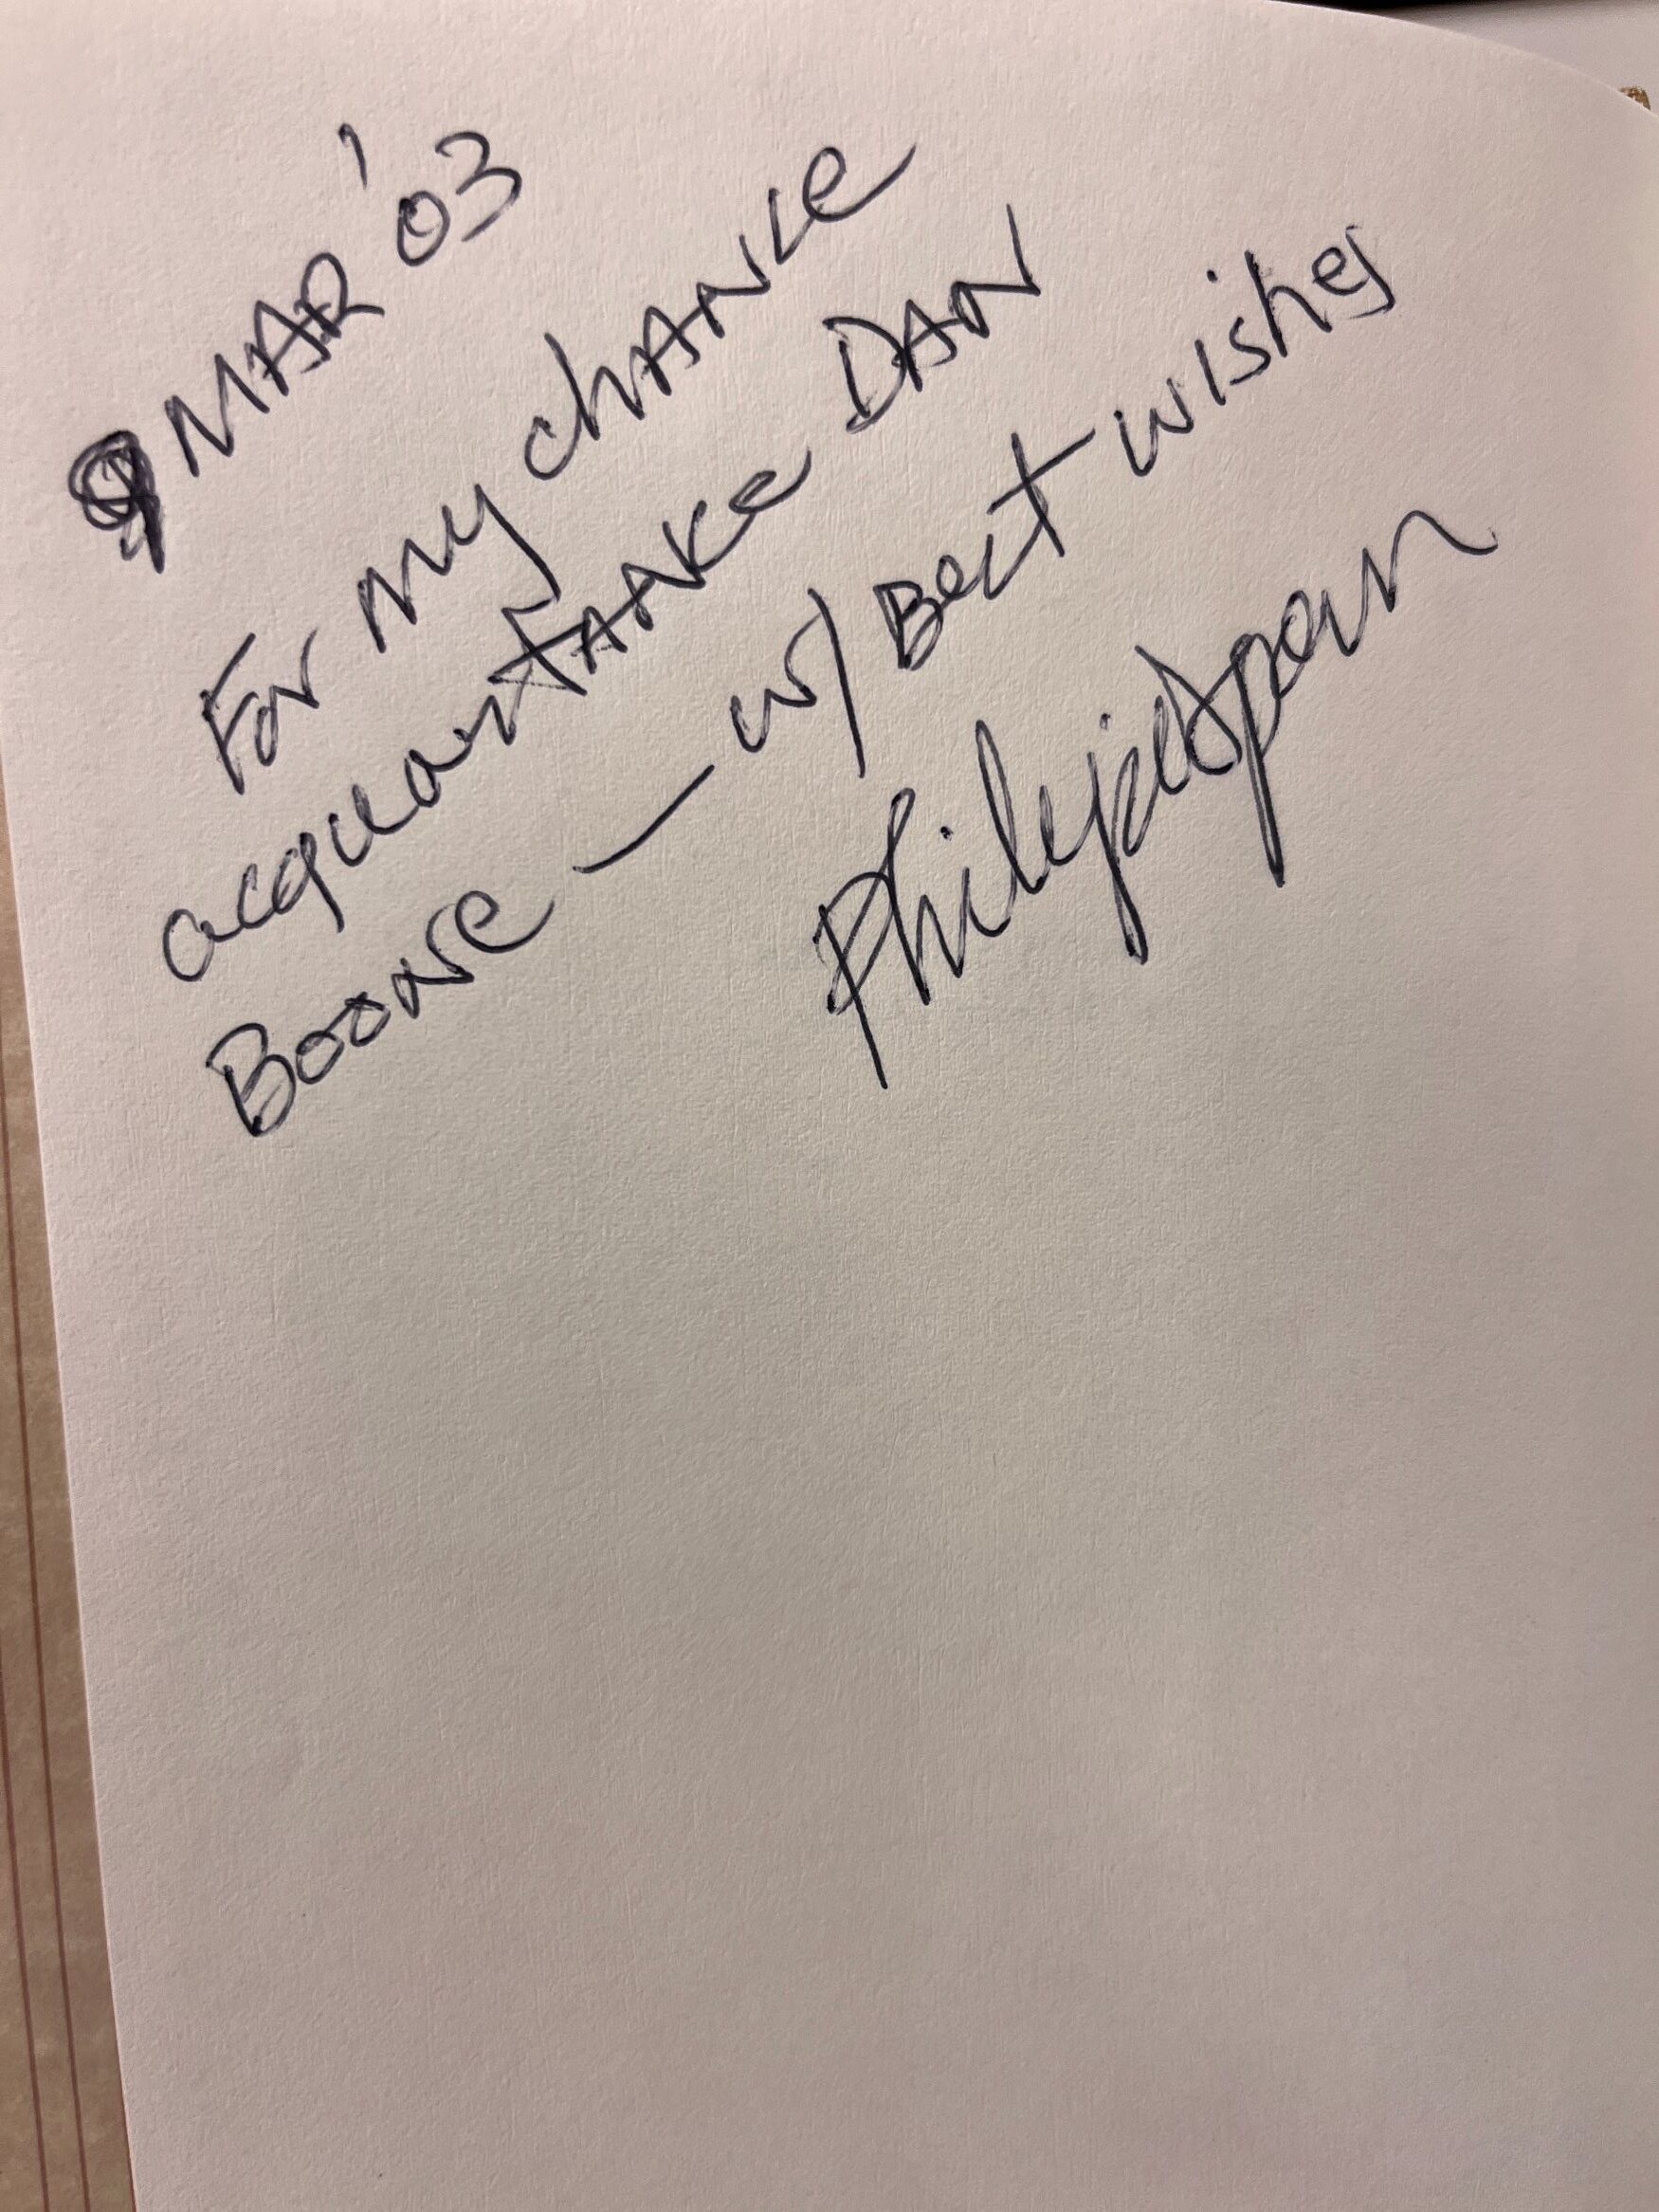 9 MAR '03
For my chance
acquaintance DAN
Boone — w/ Best wishes